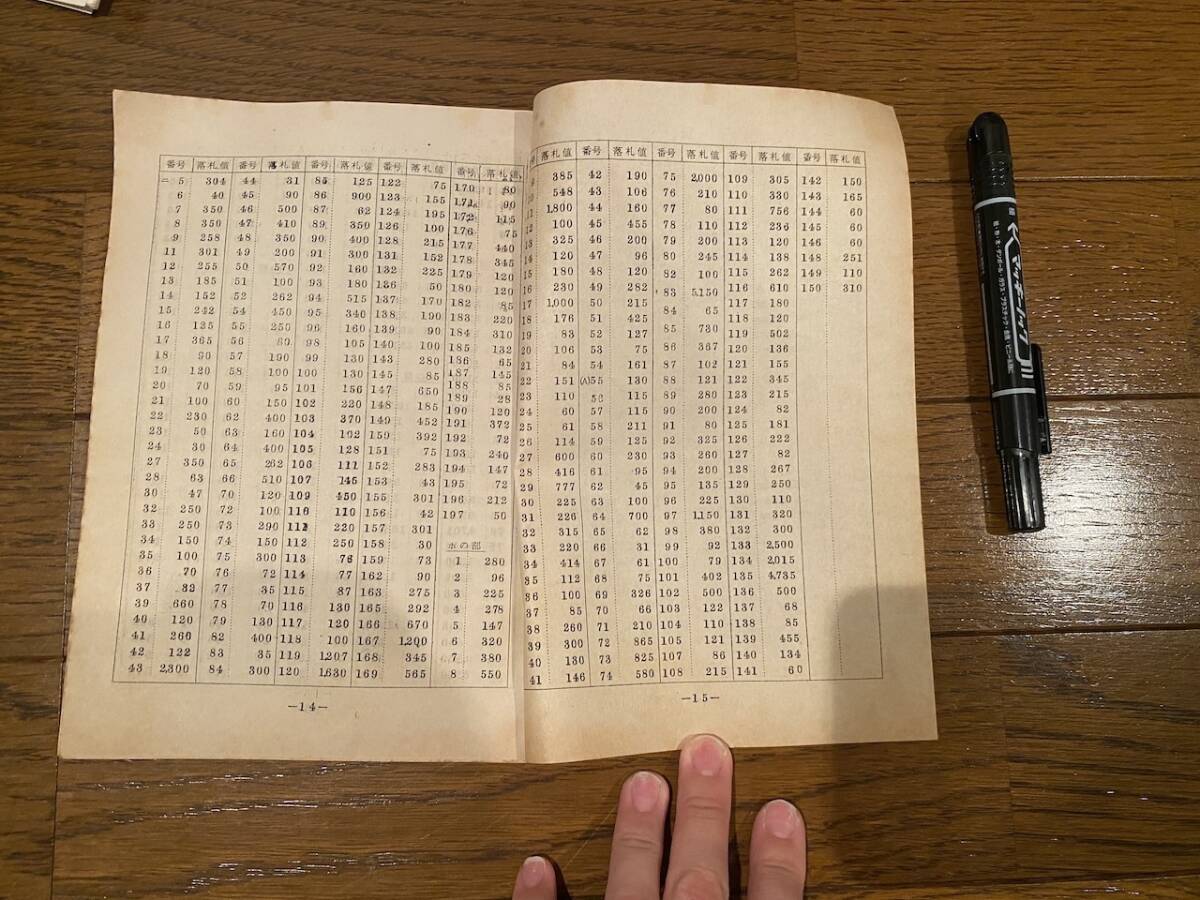 番号 落札値 番号 落札値 番号 落札値 番号 落札値 番号 落札値
ニ 5 304 44 31 85 125 122 75 170 80
6 40 45 90 86 900 123 155 171 90
7 350 46 500 87 62 124 195 172 115
8 350 47 410 89 350 126 100 176 75
9 258 48 350 90 400 128 215 177 440
11 301 49 200 91 300 131 152 178 345
12 255 50 570 92 160 132 225 179 120
13 185 51 100 93 180 136 50 180 120
14 152 52 262 94 515 137 170 182 85
15 242 54 450 95 340 138 190 183 220
16 125 55 250 96 160 139 90 184 310
17 365 56 98 105 140 100 185 132
18 90 57 190 99 130 143 280 186 65
19 120 58 100 100 130 145 85 187 145
20 70 59 95 101 156 147 650 188 85
21 100 60 150 102 220 148 185 189 28
22 230 62 400 103 370 149 452 190 120
23 50 63 160 104 102 150 392 191 372
24 30 64 400 105 128 151 75 192 72
27 350 65 262 106 111 152 283 193 240
28 63 66 510 107 145 153 43 194 147
30 47 70 120 109 450 155 301 195 72
32 250 72 100 110 110 156 42 196 212
33 250 73 290 220 157 301 197 50
34 150 74 150 112 250 158 30 ホの部
35 100 75 300 113 76 159 73 1 280
36 70 76 72 114 77 162 90 2 96
37 32 77 35 115 87 163 275 3 225
39 660 78 70 116 130 165 292 4 278
40 120 79 130 117 120 166 670 5 147
41 260 82 400 118 100 167 1,200 6 320
42 122 83 35 119 1,207 168 345 7 380
43 2,300 84 300 120 1,630 169 565 8 550
—14—
落札値 番号 落札値 番号 落札値 番号 落札値 番号 落札値
9 385 42 190 75 2,000 109 305 142 150
10 548 43 106 76 210 110 330 143 165
1,800 44 160 77 80 111 756 144 60
12 100 45 455 78 110 112 236 145 60
13 325 46 200 79 200 113 120 146 60
14 120 47 96 80 245 114 138 148 251
15 180 48 120 82 100 115 262 149 110
16 230 49 282 83 5,150 116 610 150 310
17 1,000 50 215 84 65 117 180
18 176 51 425 85 730 118 120
19 83 52 127 86 367 119 502
20 106 53 75 87 102 120 136
21 84 54 161 88 121 121 155
22 151 (A)55 130 89 280 122 345
23 110 56 115 90 200 123 215
24 60 57 115 91 80 124 82
25 61 58 211 92 325 125 181
26 114 59 125 93 260 126 222
27 600 60 230 94 200 127 82
28 416 61 95 95 135 128 267
29 777 62 45 96 225 129 250
30 225 63 100 97 1,150 130 110
31 226 64 700 98 380 131 320
32 315 65 62 99 92 132 300
33 220 66 31 100 79 133 2,500
34 414 67 61 101 402 134 2,015
35 112 68 75 102 500 135 4,735
36 100 69 326 103 122 136 500
37 85 70 66 104 110 137 68
38 260 71 210 105 121 138 85
39 300 72 865 106 139 455
40 130 73 825 107 86 140 134
41 146 74 580 108 215 141 60
—15—
マッキーノック